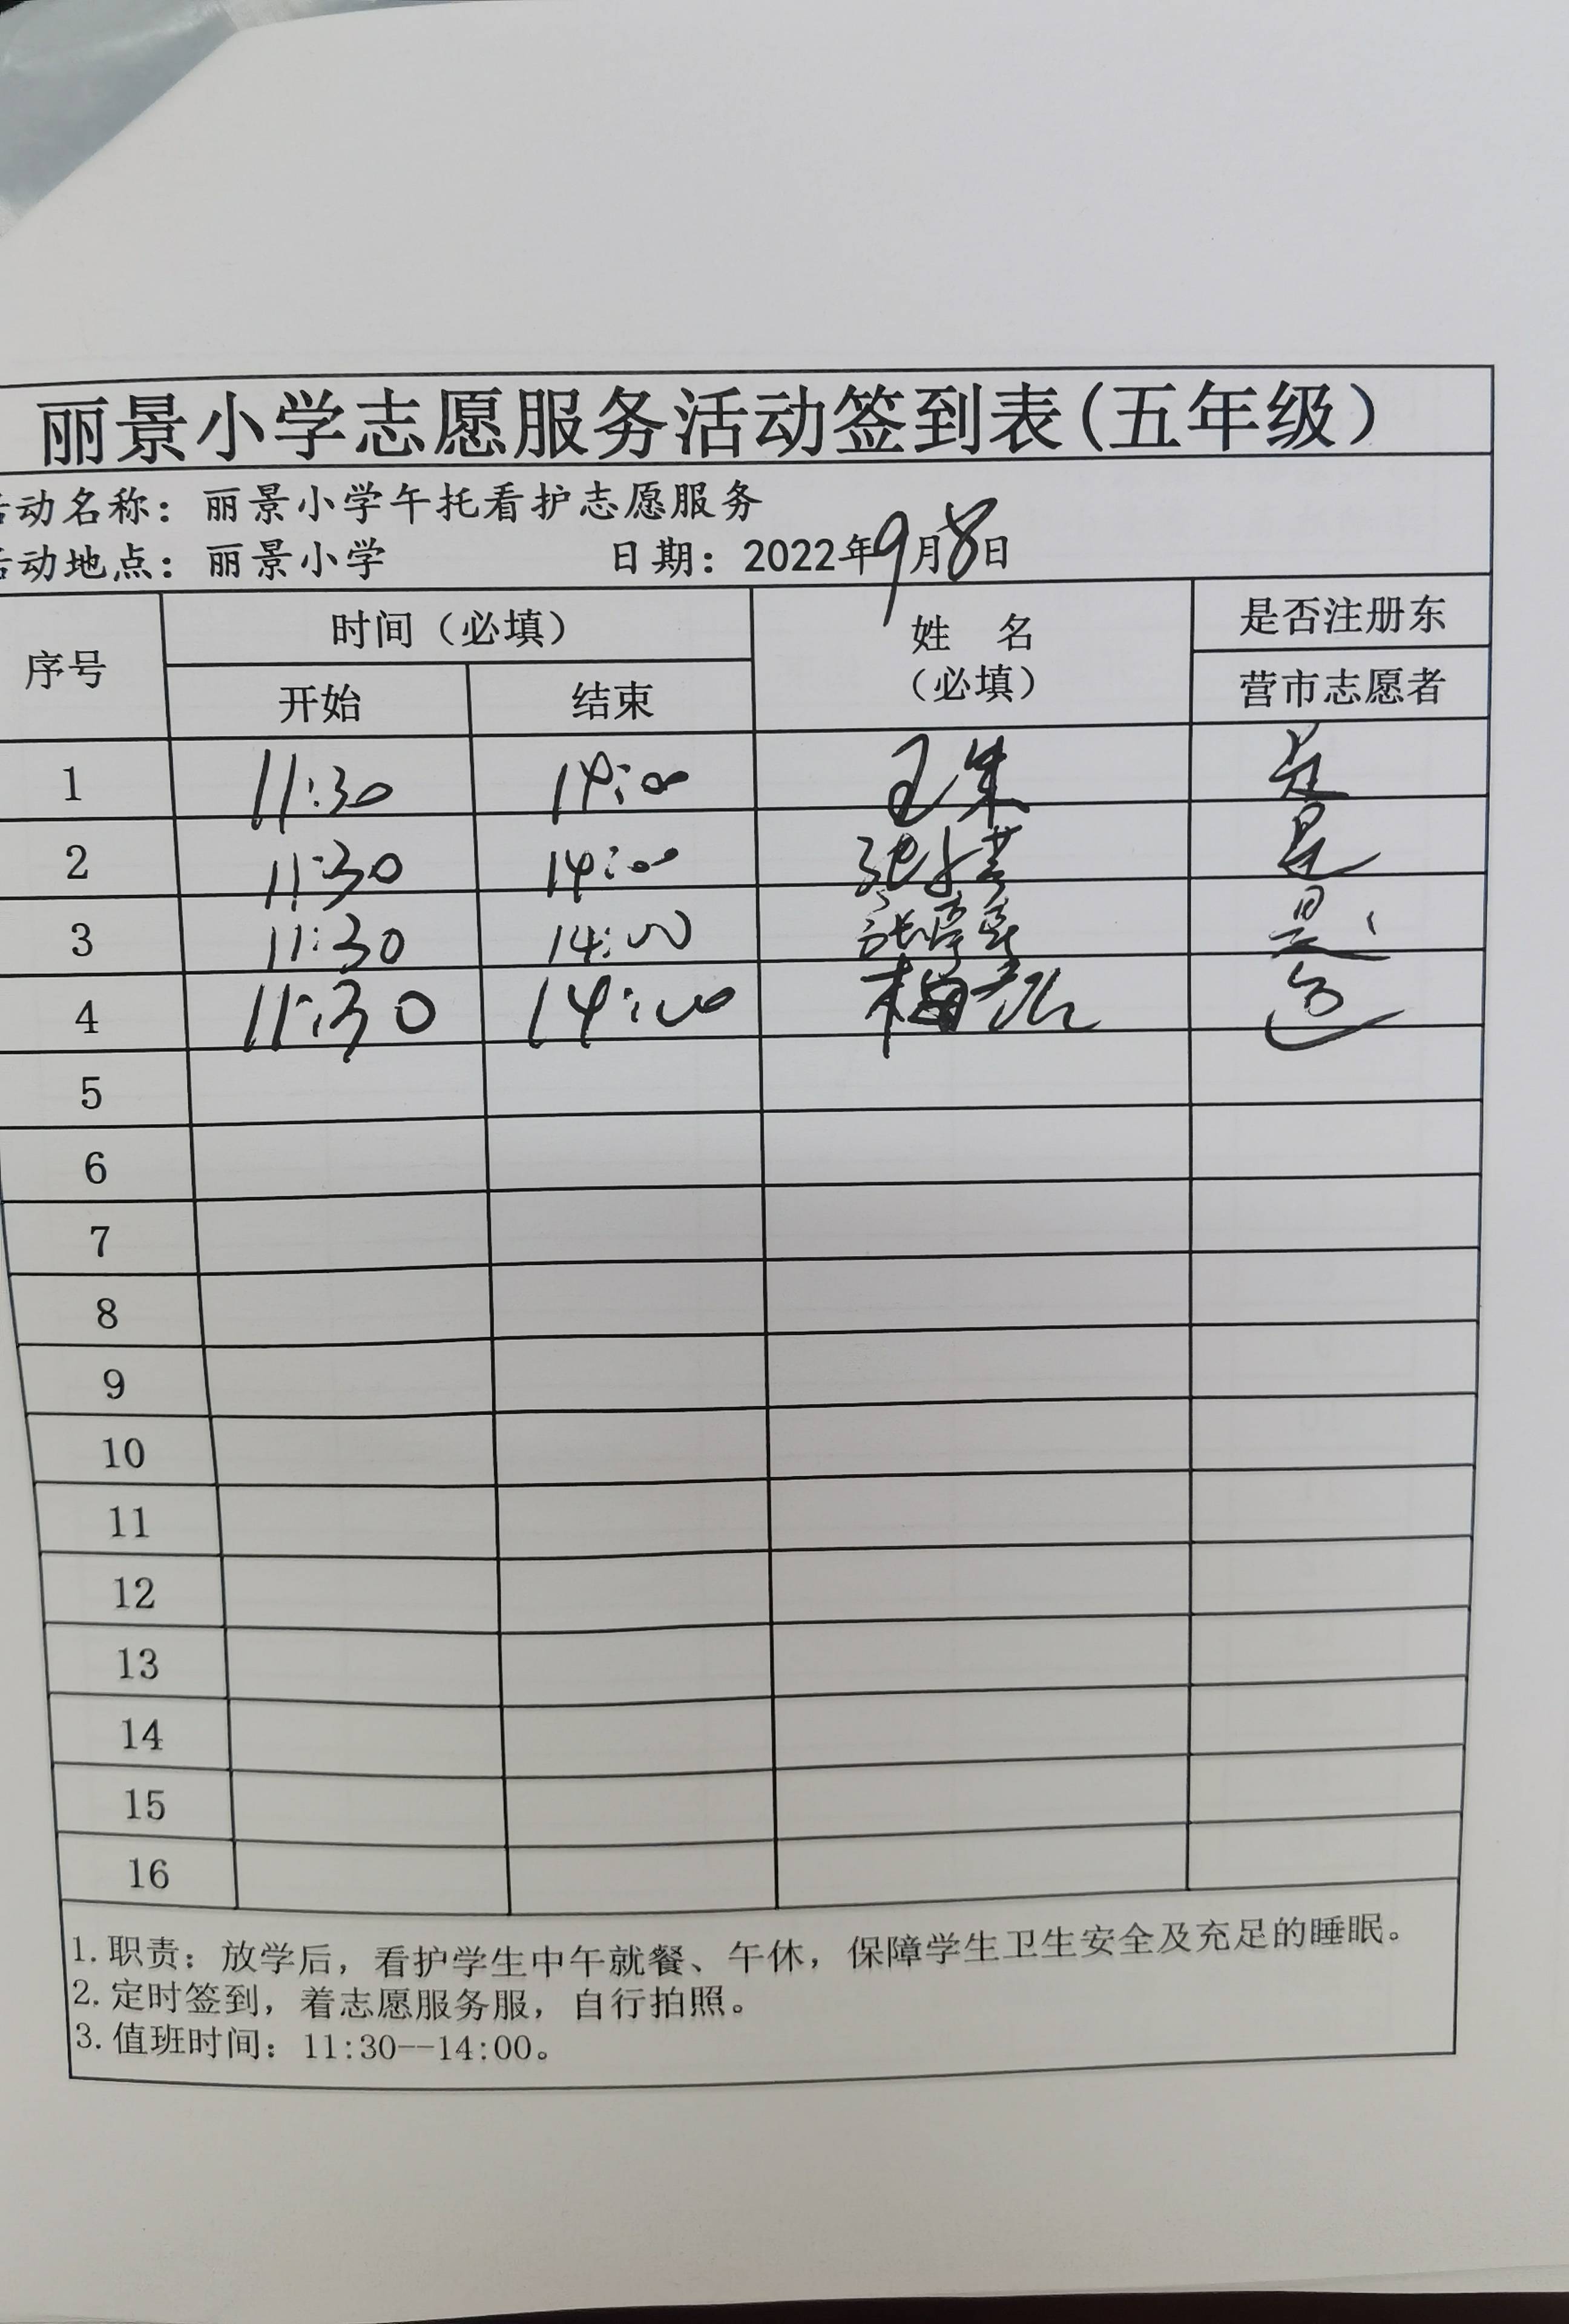 丽景小学志愿服务活动签到表(五年级)
活动名称：丽景小学午托看护志愿服务
活动地点：丽景小学 日期：2022年9月8日
序号 时间（必填） 姓 名（必填） 是否注册东营市志愿者
开始 结束
1 11:30 14:00 王朱 是
2 11:30 14:00 张 是
3 11:30 14:00 张婷婷 是
4 11:30 14:00 梅 是
5
6
7
8
9
10
11
12
13
14
15
16
1.职责：放学后，看护学生中午就餐、午休，保障学生卫生安全及充足的睡眠。
2.定时签到，着志愿服务服，自行拍照。
3.值班时间：11:30--14:00。